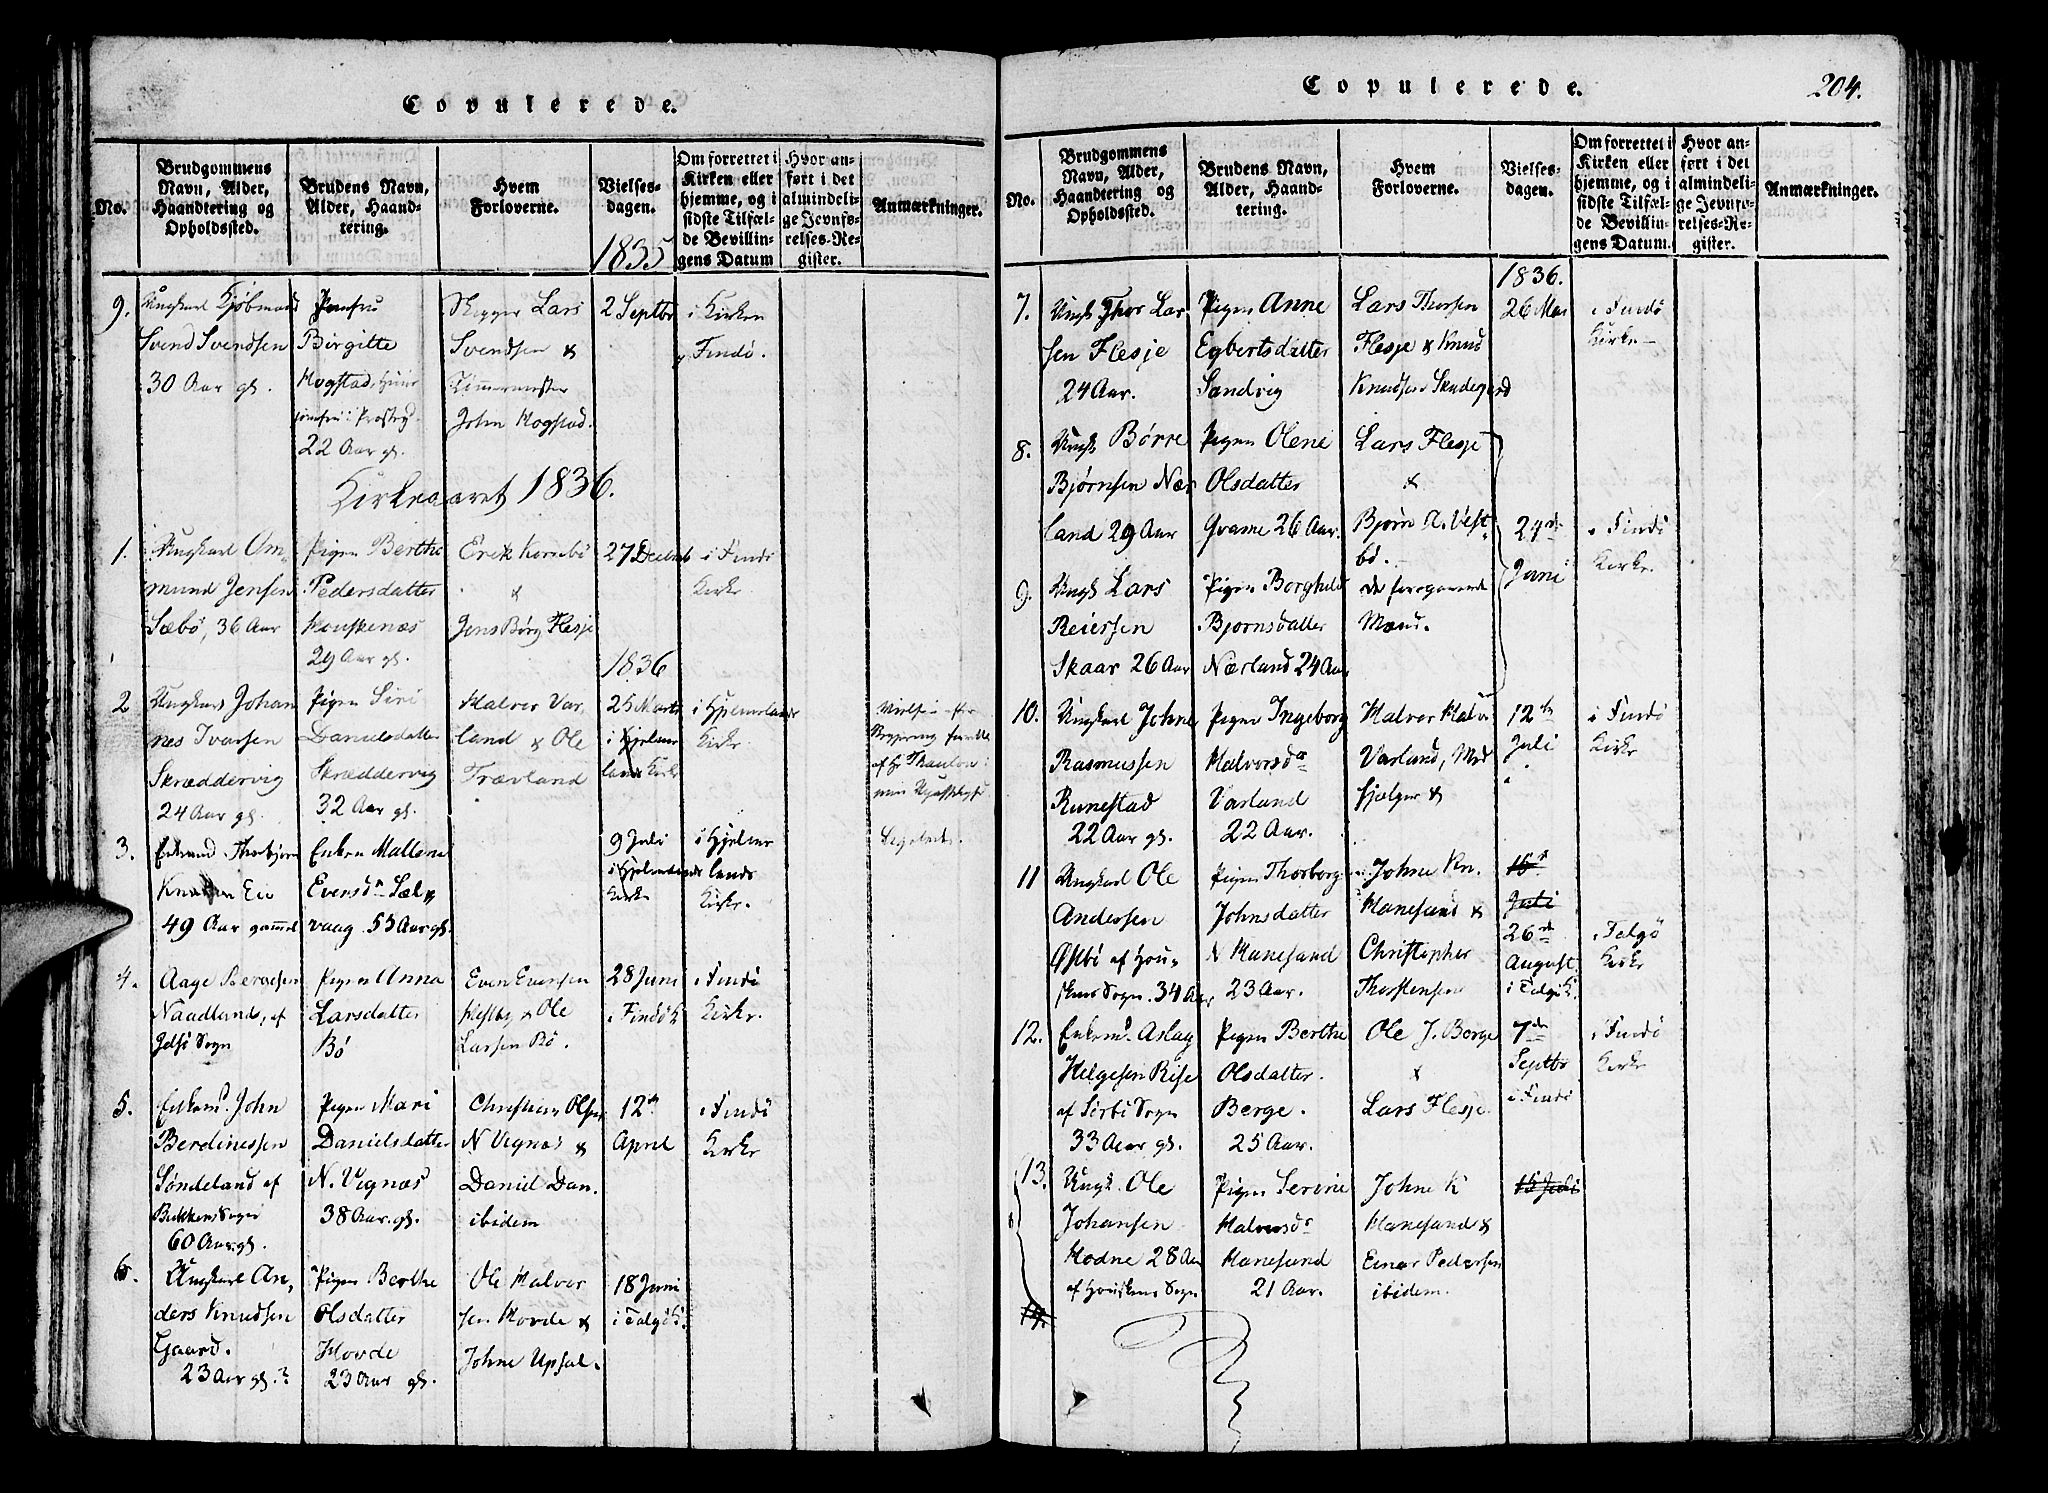 Copulerede.
No.
Brudgommens
Navn, Alder,
Haandtering og
Opholdssted.
Brudens Navn,
Alder, Haand-
tering.
Hvem
Forloverne.
Vielses-
dagen.
Om forrettet i
Kirken eller
hjemme, og i
sidste Tilfæl-
de Bevillin-
gens Datum
Hvor an-
ført i det
almindeli-
ge Jevnfø-
relses-Re-
gister.
Anmærkninger.
1835
9.
Ungkarl Kjøbmand
Svend Svendsen
30 Aar gl.
Jomfru
Birgitte
Hogstad,
22 Aar gl.
Skipper Lars
Svendsen &
John Hogstad.
2 Septbr
i Kirken
Findö.
Kirkeaaret 1836.
1.
Ungkarl Om-
mund Jensen
Sæbö, 36 Aar
Pigen Berthe
Pedersdatter
Houskenæs
29 Aar gl.
Erik Kornebö
&
Jens Börg Flesje
27 Decemb
i Findö
Kirke
1836
2
Ungkarl Johan
nes Ivarsen
Skræddervig
24 Aar gl.
Pigen Siri
Danielsdatter
Skræddervig
32 Aar gl.
Halvor Var
land & Ole
Trævland
25 Marts
i Hjelme
lands Kirke
i Hjelmelands
Kirke.
3.
Enkemd. Thorbjörn
Knudsen Eie
49 Aar gammel
Enken Mallene
Evensdr. Sæl-
vaag. 55 Aar gl.
9 Juli
i Hjelmelands
Kirke
i Hjelme
lands
Kirke.
4.
Aage Bergesen
Naadland, af
Jelsö Sogn
Pigen Anna
Larsdatter
Bö
Even Evensen
Hestby & Ole
Larsen Bö.
28 Juni
i Findö K
i Findö
Kirke.
5.
Enkem. John
Berdinessen
Söndeland af
Bukkens Sogn
60 Aar gl.
Pigen Mari
Danielsdatter
N. Vignæs
38 Aar gl.
Christian Olsen
N Vignæs &
Daniel Dan.
ibidem
12te
April
i Findö
Kirke
6.
Ungkarl An-
ders Knudsen
Gaard.
23 Aar gl.?
Pigen Berthe
Olsdatter
Hovde
23 Aar gl.
Ole Halvor
sen Hovde &
Johne Upsal.
18 Juni
i Talgö K.
Copulerede.
204.
No.
Brudgommens
Navn, Alder,
Haandtering og
Opholdssted.
Brudens Navn,
Alder, Haand-
tering.
Hvem
Forloverne.
Vielses-
dagen.
Om forrettet i
Kirken eller
hjemme, og i
sidste Tilfæl-
de Bevillin-
gens Datum.
Hvor an-
ført i det
almindeli-
ge Jevnfø-
relses-Re-
gister.
Anmærkninger.
1836.
7.
Ungk. Thor Lar-
sen Flesje
24 Aar.
Pigen Anne
Egbertsdatter
Sandvig
Lars Thorsen
Flesje & Knud
Knudsen Skudegard
26 Mai
i Findö
Kirke
8.
Ungk. Börre
Björnsen Nær
land 29 Aar
Pigen Olene
Olsdatter
Qvame 26 Aar.
Lars Flesje
&
Björn N. Vest
bö.
24de
Juni
i Findö
Kirke.
9.
Ungk. Lars
Reiersen
Skaar 26 Aar
Pigen Borghild
Bjornsdatter
Nærland 24 Aar
de foregaaende
Mænd.
10.
Ungkarl Johne
Rasmussen
Runestad
22 Aar gl.
Pigen Ingeborg
Halvorsdr
Varland
22 Aar.
Halvor Halv
Varland, Med
hjælper &
12te
Juli
i Findö
Kirke
11
Ungkarl Ole
Andersen
Östbö af Hou-
skens Sogn. 34 Aar
Pigen Thorborg
Johnsdatter
N Hanesund
23 Aar.
Johne Kn.
Hanesund &
Christopher
Thorstensen
15
Juli
26de
August.
i Talgö K.
i Talgö
Kirke
12.
Enkem. Aslag
Helgesen Rise
af Sörbö Sogn
33 Aar gl.
Pigen Berthe
Olsdatter.
Berge.
25 Aar.
Ole J. Berge
&
Lars Flesje
7de
Septbr
i Findö
i Findö
Kirke
13.
Ungk. Ole
Johansen
Hodne 28 Aar
af Houskens Sogn
Pigen Serine
Halvorsdr
Hanesund
21 Aar.
Johne K
Hanesund &
Einar Pedersen
ibidem.
15 Juli
14.